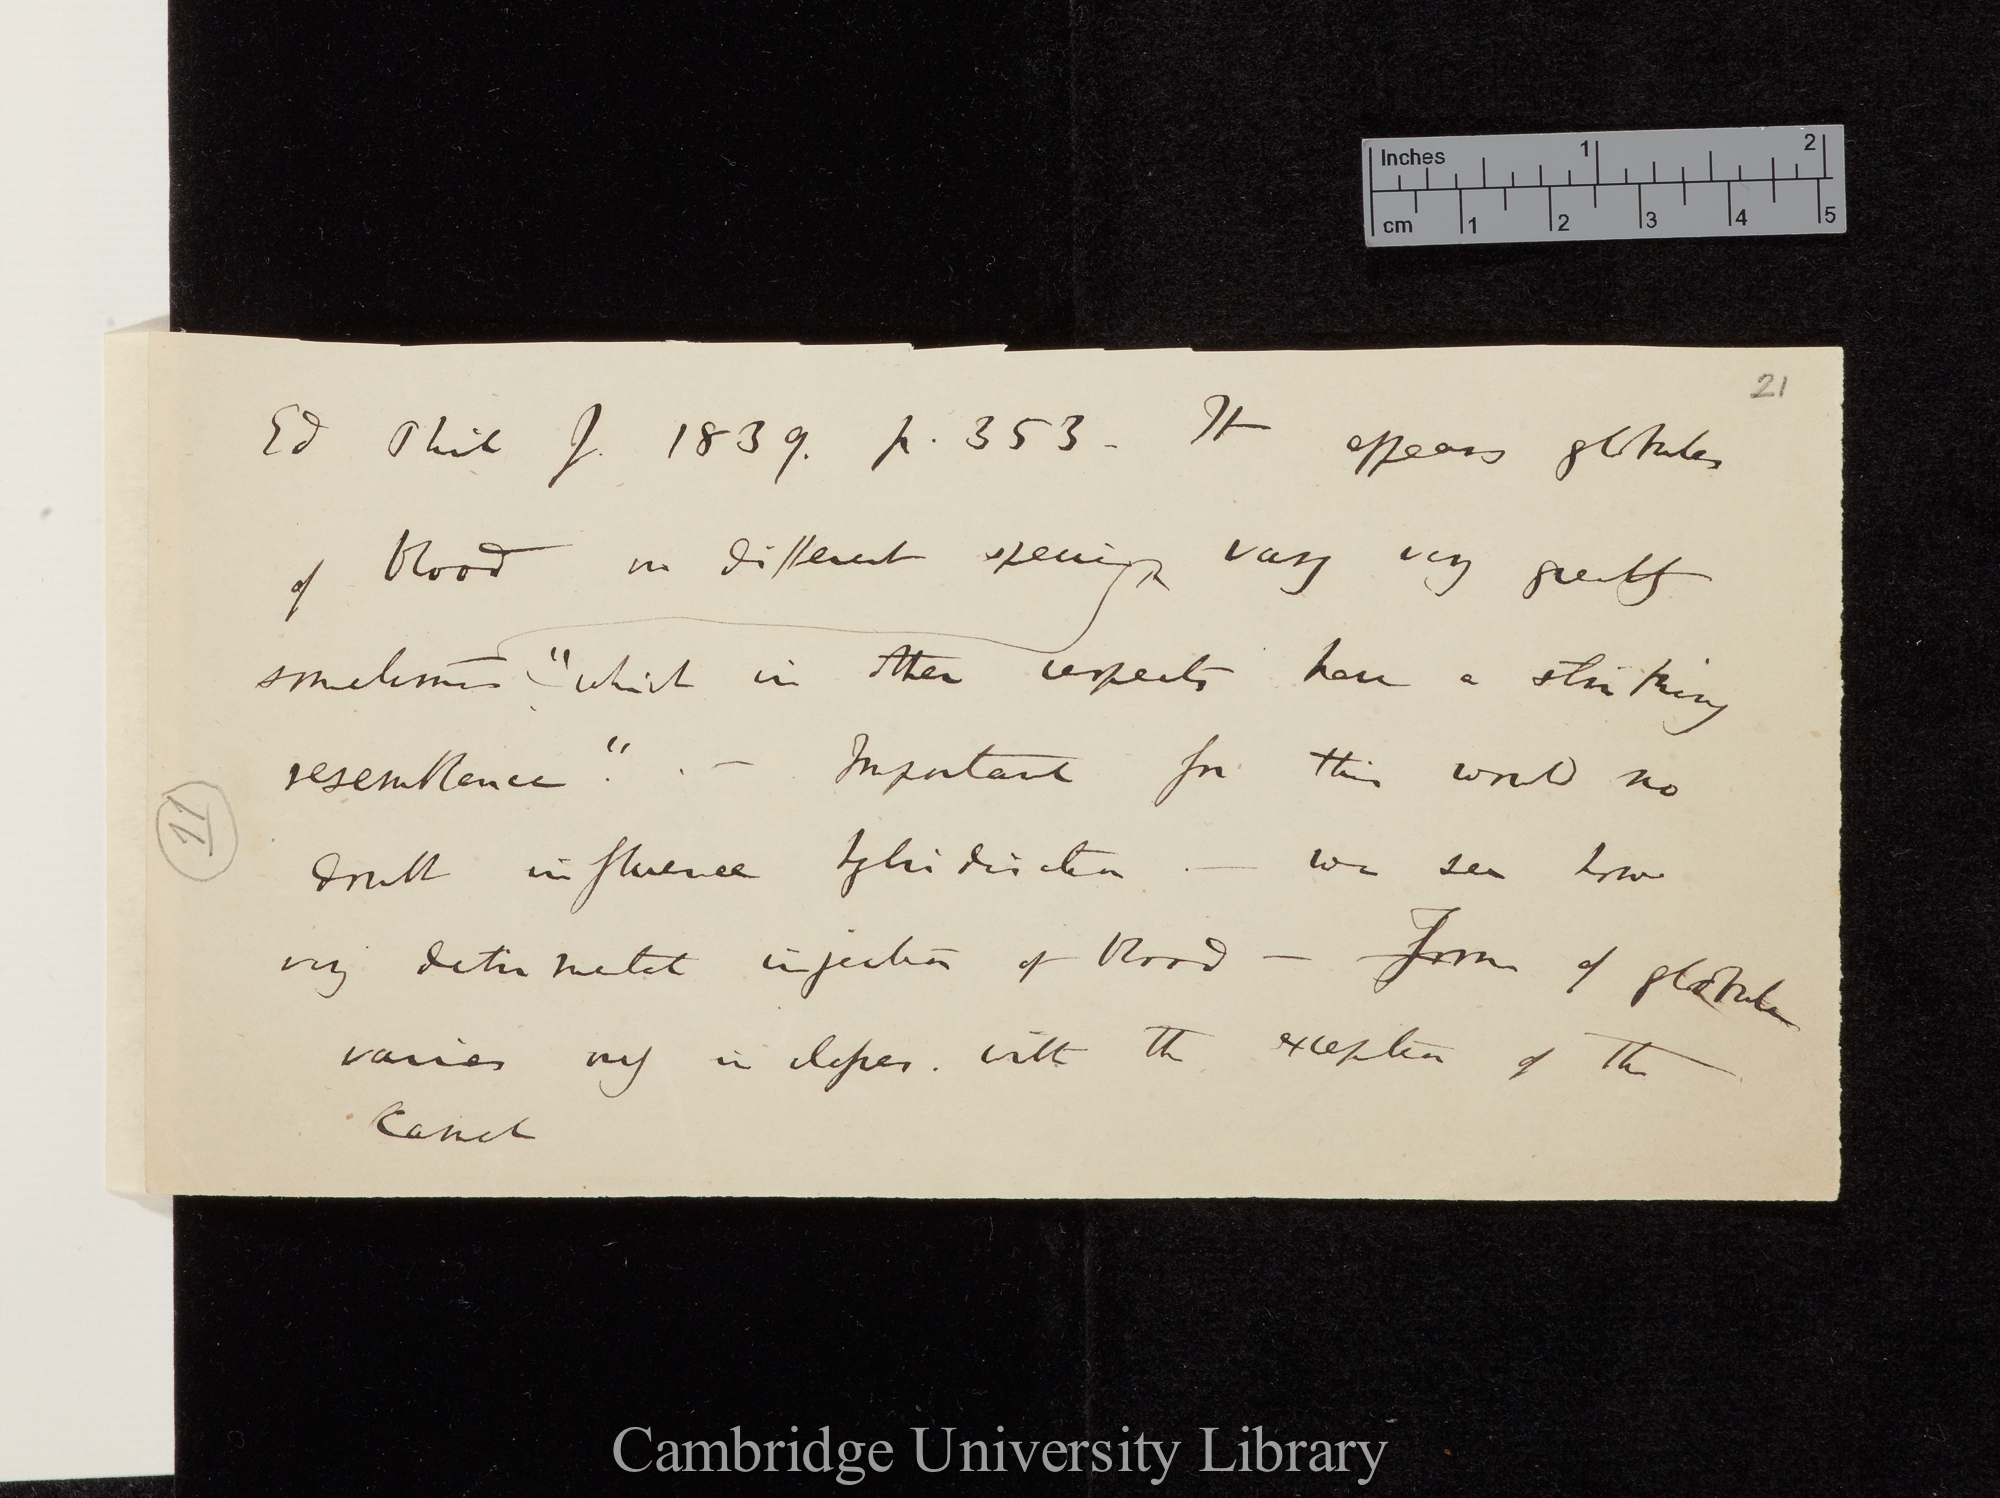 Inches 1 2
cm 1 2 3 4 5
21
Ed Phil J. 1839. p. 353 - It appears globules
of blood in different species vary very greatly
sometimes "which in other respects have a striking
resemblance". — Important for this would no
doubt influence hybridisation — we see how
very detrimental injection of blood — Form of globules
varies very in with the exception of the
Camel
11
Cambridge University Library